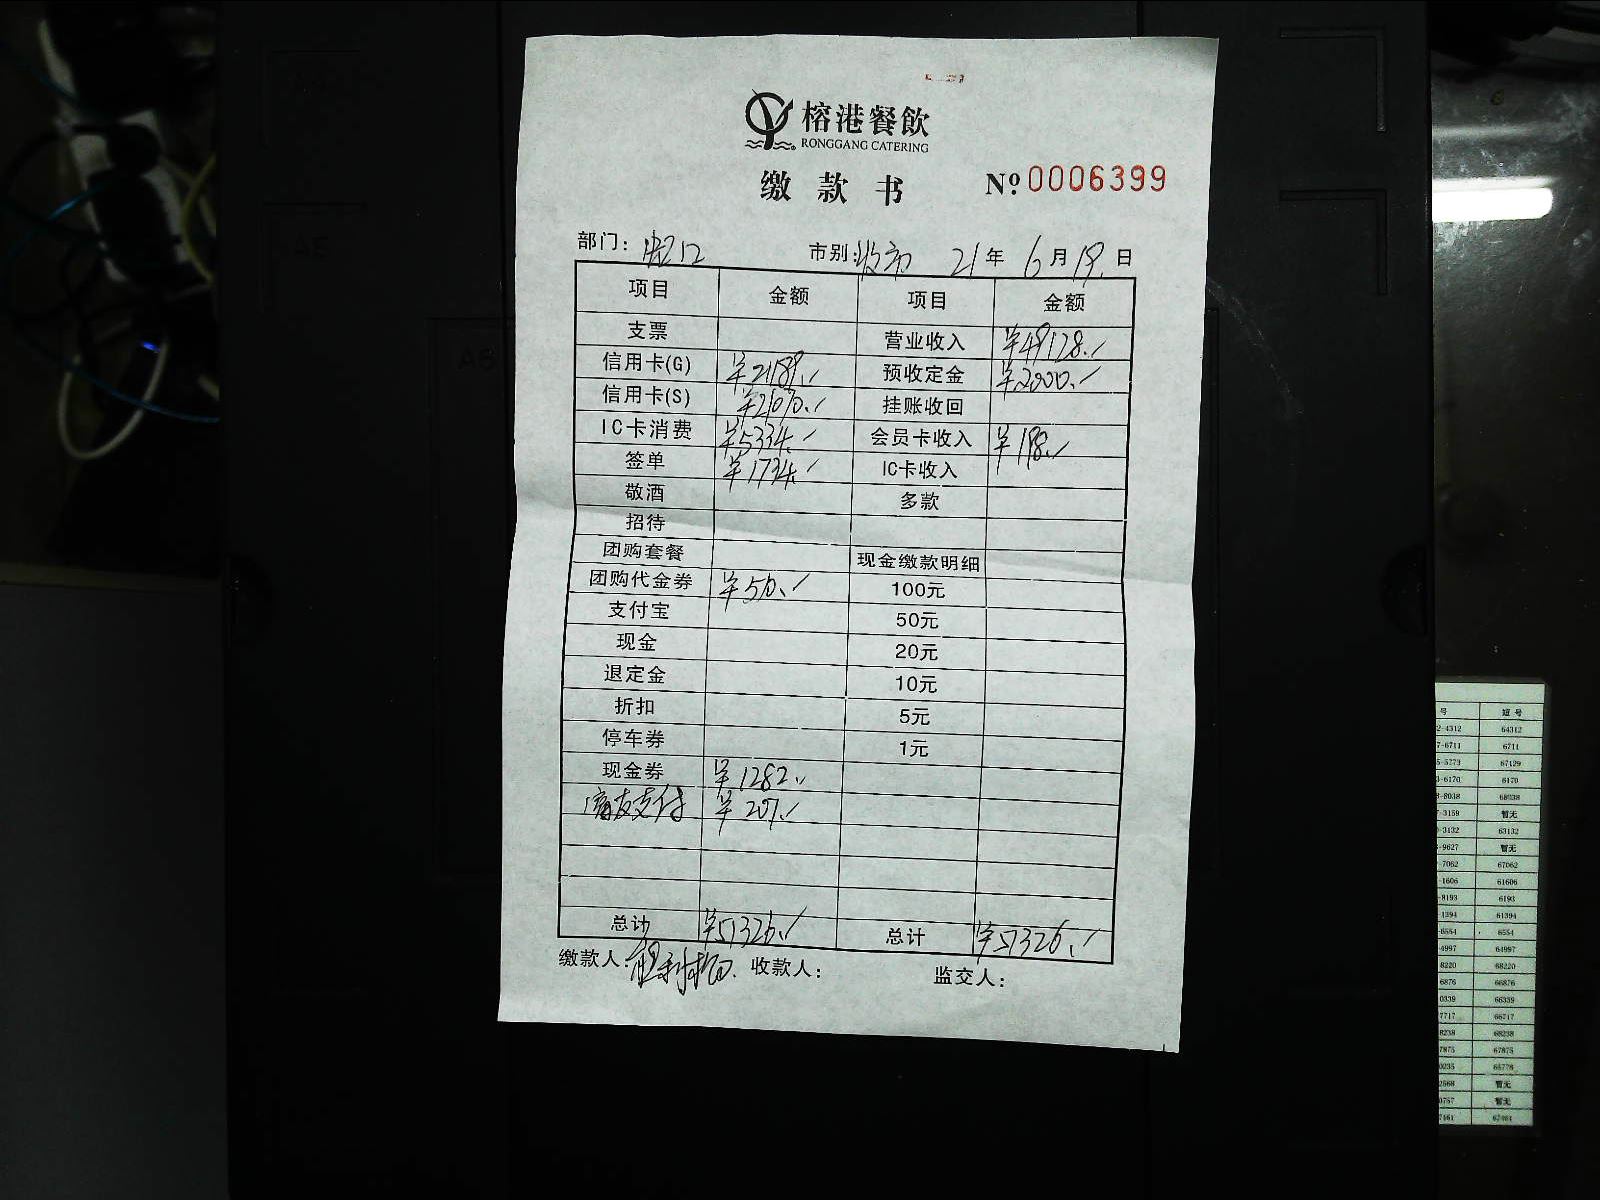 榕港餐飲
RONGGANG CATERING
缴款书 № 0006399
部门: 蛇口 市别: 收市 21年6月19日
项目 金额 项目 金额
支票 营业收入 ¥49128.
信用卡(G) 预收定金 ¥2000.
信用卡(S) 挂账收回
IC卡消费 ¥5334. 会员卡收入 ¥198.
签单 ¥1734. IC卡收入
敬酒 多款
招待
团购套餐 现金缴款明细
团购代金券 100元
支付宝 50元
现金 20元
退定金 10元
折扣 5元
停车券 1元
现金券 ¥1282.
支付 ¥201.
总计 ¥51326. 总计 ¥51326.
缴款人: 收款人: 监交人:
号 短号
2-4312 64312
7-6711 6711
5-5273 67129
3-6170 6170
8-8038 68038
7-3159 暂无
0-3132 63132
-9627 暂无
-7062 67062
-1606 61606
-8193 6193
-1394 61394
-6554 6554
-4997 64997
8220 68220
6876 66876
0339 66339
7717 66717
8238 68238
7875 67875
0235 65778
2568 暂无
0757 暂无